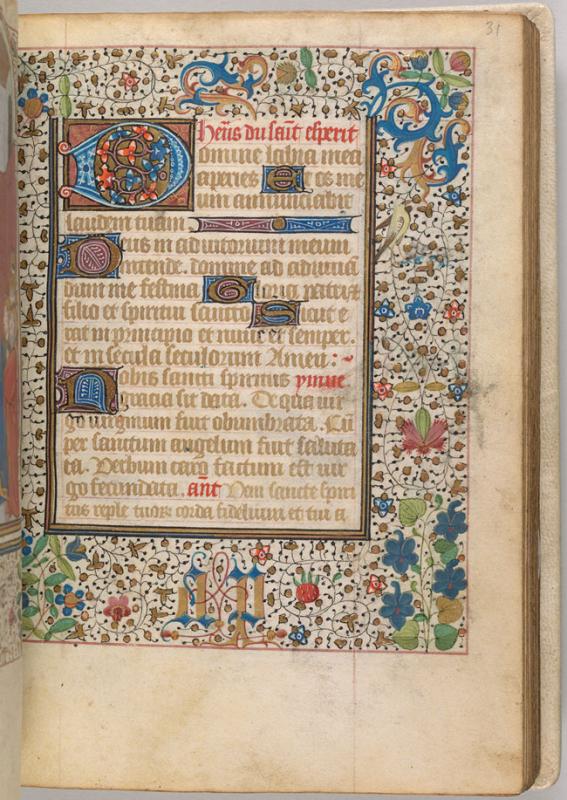 31
heũs du saĩt esperit
Domine labia mea
aperies Et os me
um annunciabit
laudem tuam
Deus in adiutorium meum
intende. domine ad adiuuã
dum me festina Gloria patri et
filio et spiritui sancto Sicut e
rat in principio et nunc et semper.
et in secula seculorum Amen :~
Nobis sancti spiritus ympne
gracia sit data. De qua uir
go uirginum fuit obumbrata. Cũ
per sanctum angelum fuit saluta
ta. Verbum caro factum est uir
go fecundata. añt Veni sancte spiri
tus reple tuoꝝ corda fidelium et tui a